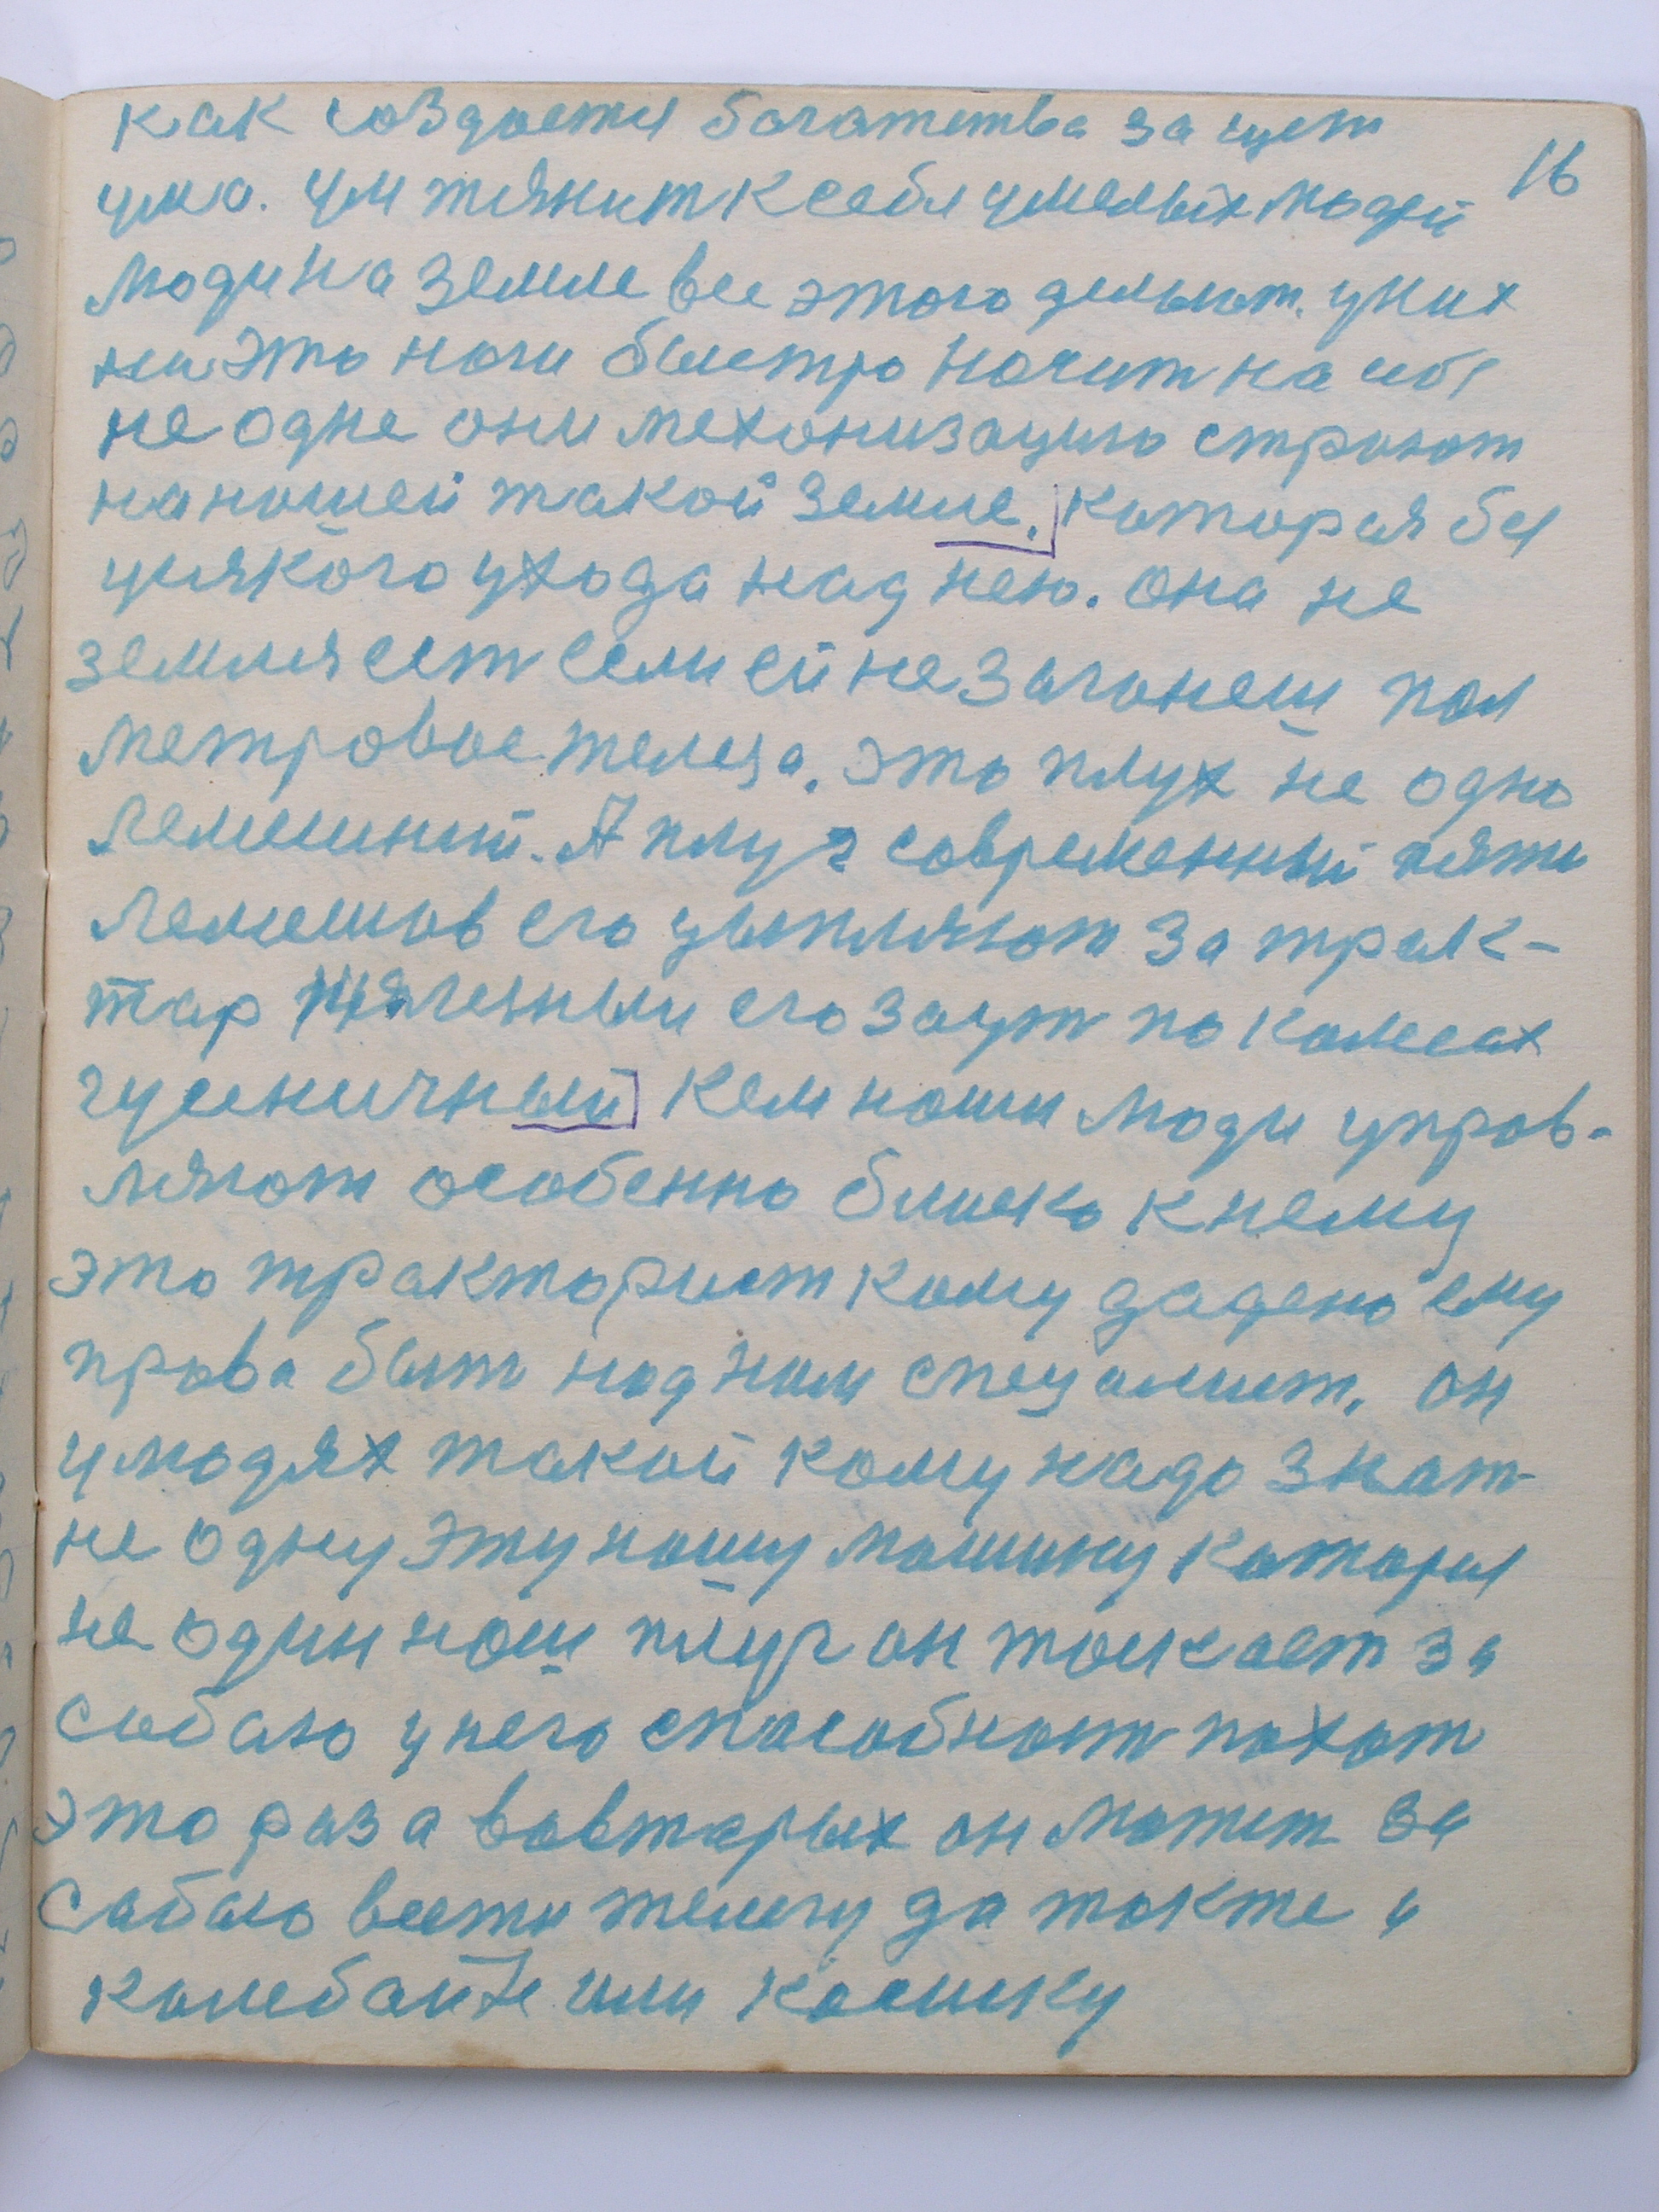 как создается богатства за щет
16
ума. Ум тянит к себя умелых людей
люди на земле все этого делают. у них
на это ноги быстро начит на себя
не одне они механизацию строют
на нашей такой земле. которая бе
усякого ухода над нею. она не
земля ест если ей не загонеш пол
метровое телеза. это плух не одно
лемешний. А плуг современный пяти
лемешов его цыпляют за трак-
тар тягечным его зоут по колесах
гусеничный Кем наши люди управ-
ляют особенно близко к нему
это тракторист кому дадено ему
права быт над ним специалист. он
у людях такой кому надо знат
не одну эту нашу машину которая
не один наш плуг он таскает за
собаю у него способност пахат
это раз а вовторых он может за
собаю вести телегу да также и
комебайне или косилку